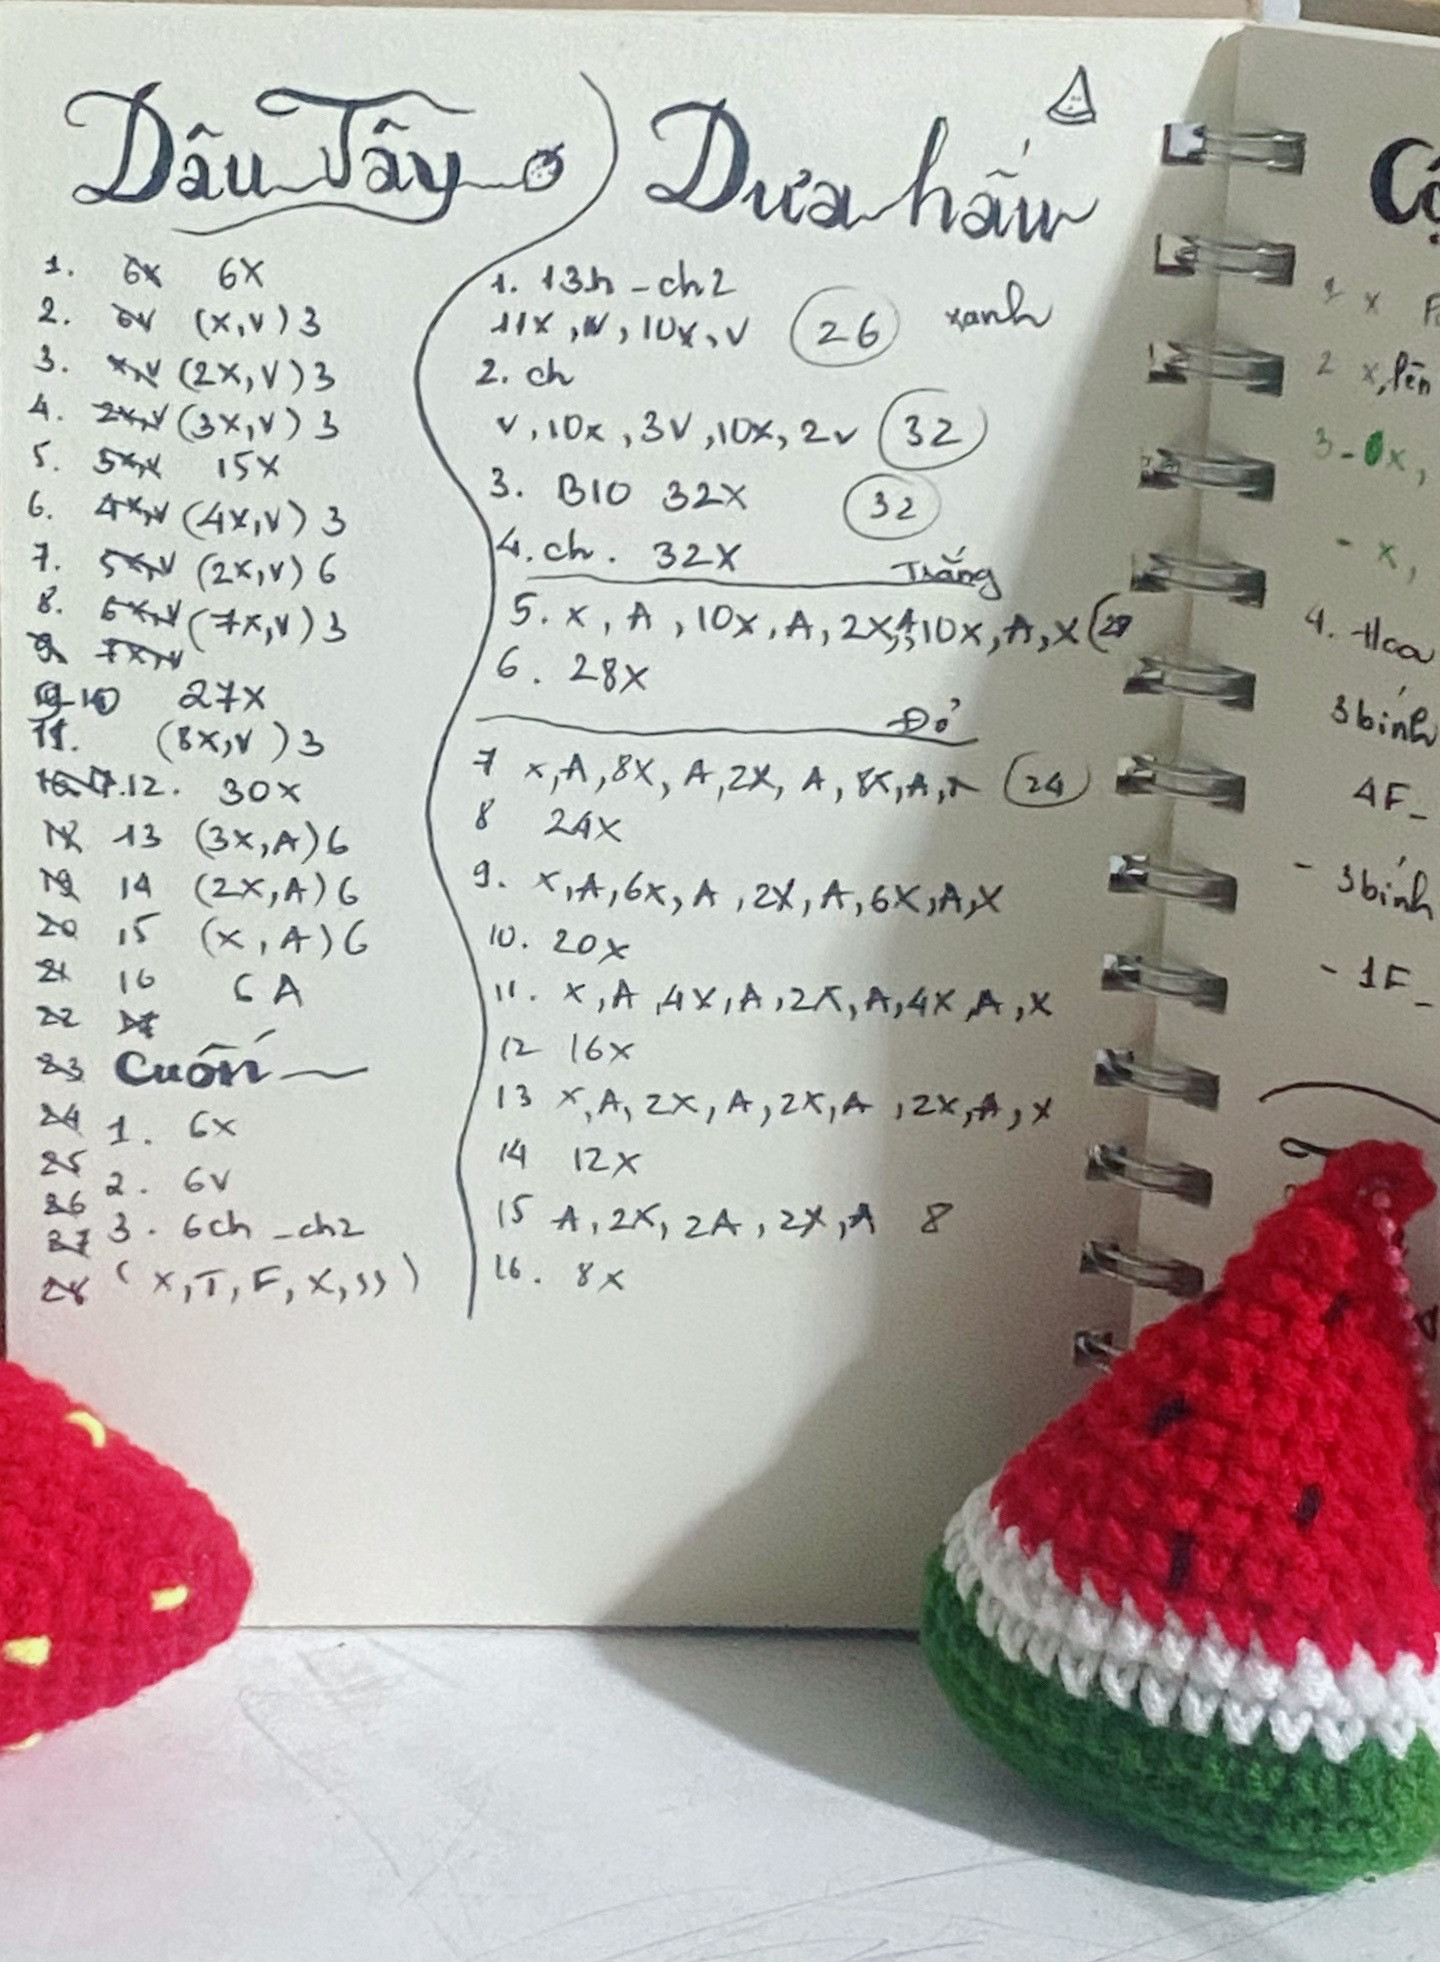 Dâu Tây
1. 6x 6x
2. 6v (x,v)3
3. x,v (2x,v)3
4. 2x,v (3x,v)3
5. 5x,v 15x
6. 4x,v (4x,v)3
7. 5x,v (2x,v)6
8. 6x,v (7x,v)3
9. 7x,v
9-10 27x
11. (8x,v)3
12. 30x
13 (3x,A)6
19 14 (2x,A)6
20 15 (x,A)6
21 16 6A
22
23 Cuốn
24 1. 6x
25 2. 6v
26
27 3. 6ch_ch2
28 (x,T,F,x,ss)
Dưa hấu
1. 13h_ch2
11x,w,10x,v 26 xanh
2. ch
v,10x,3v,10x,2v 32
3. B10 32x 32
4. ch. 32x
Trắng
5. x,A,10x,A,2x,A,10x,A,x (28
6. 28x
Đỏ
7 x,A,8x,A,2x,A,8x,A,x 24
8 24x
9. x,A,6x,A,2x,A,6x,A,x
10. 20x
11. x,A,4x,A,2x,A,4x,A,x
12 16x
13 x,A,2x,A,2x,A,2x,A,x
14 12x
15 A,2x,2A,2x,A 8
16. 8x
2 x,lên
3-6x,
- x,
4. Hoa
3 bính
4F_
- 3 bính
- 1F_